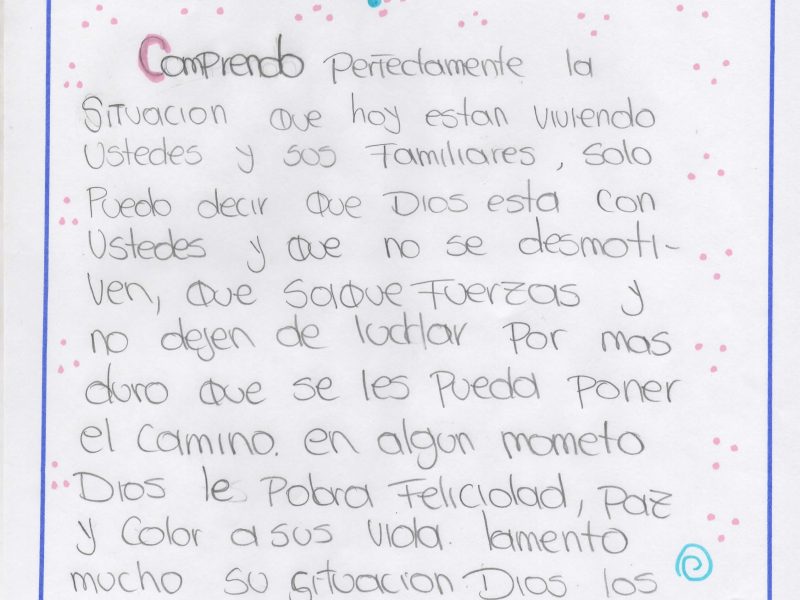 Comprendo perfectamente la
Situacion que hoy estan viviendo
Ustedes y sus Familiares, Solo
Puedo decir que Dios esta con
Ustedes y que no se desmoti-
ven, que saque Fuerzas y
no dejen de luchar por mas
duro que se les pueda poner
el camino. en algun mometo
Dios le pobra Felicidad, paz
y Color a sus vida. lamento
mucho su situacion Dios los